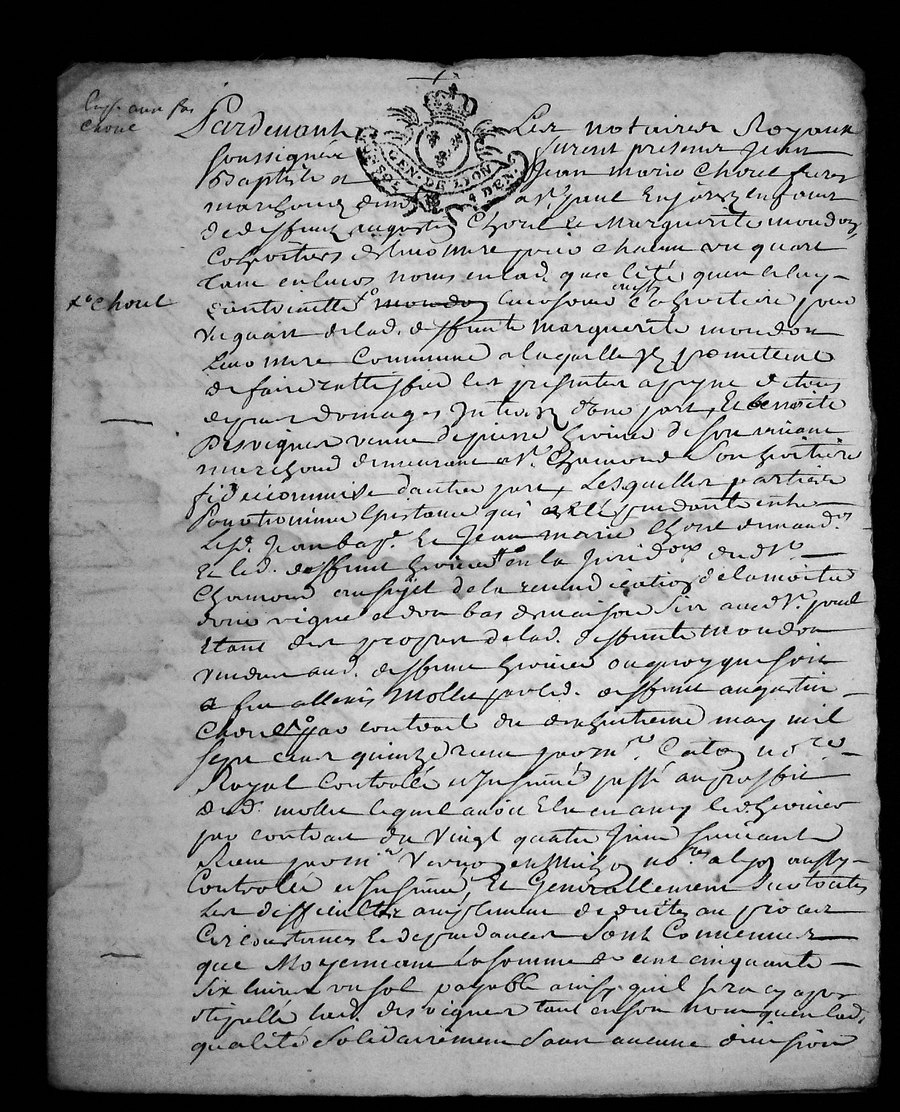 Chorel
Pardevant Les notaires Royaux
soussignés furent presents Jean
Baptiste et Jean Marie Chorel freres
GEN. DE LYON
4 DEN.
marchands St. paul En jarez enfans
de deffunt augustin Chorel et Marguerite moudon
Cohoritiers de leur mere pour chacun un quart
tant en leurs noms en lad. qualité quen celuy
d'antoinette leur soeur Cohoritiere pour
Un quart de lad. deffunte marguerite moudon
Leur mere Commune a laquelle ils promettent
de faire rattiffier les presentes a peyne de tous
depens domages Interets d'une part, Et benoite
Desvignes veuve de pierre de son vivant
marchand demeurant a St. Chamond son heritiere
fideicommise d'autre part, Lesquelles parties
Pour terminer L'instance qui pendante entre
Led. Jean bapt. Et Jean marie Chorel demand.rs
Et led. deffunt en la Jurid.on dud. St
Chamond au sujet de la revendication de la moitié
d'une vigne et d'un bas de maison sis aud. St. paul
Etant des propres de lad. deffunte moudon
vendus aud. deffunt ou quoy que soit
a feu allexis Mollet par led. deffunt augustin
Chorel par contrait du dixhuitieme may mil
sept cent quinze receu par m.e Caton no.re
Royal Controllé et Insinué passé au proffit
dud. mollet lequel avoit Eleu en amy led.
par contrait du Vingt quatre Juin suivant
Receu par m.e no.re aussy
Controllé et Insinué, Et Generallement sur toutes
Les difficultés amplement deduites au proces
Circonstances Et dependances sont Convenues
que Moyennant La somme de cent cinquante
six livres un sol payable ainsy quil sera cy apres
stipullé lad. desvignes tant en son nom quen lad.
qualité solidairement sans aucune division
Chorel